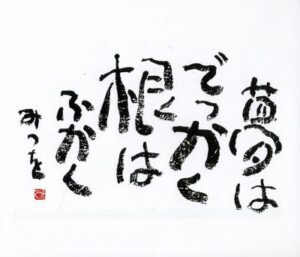 夢は
でっかく
根は
ふかく
みつを